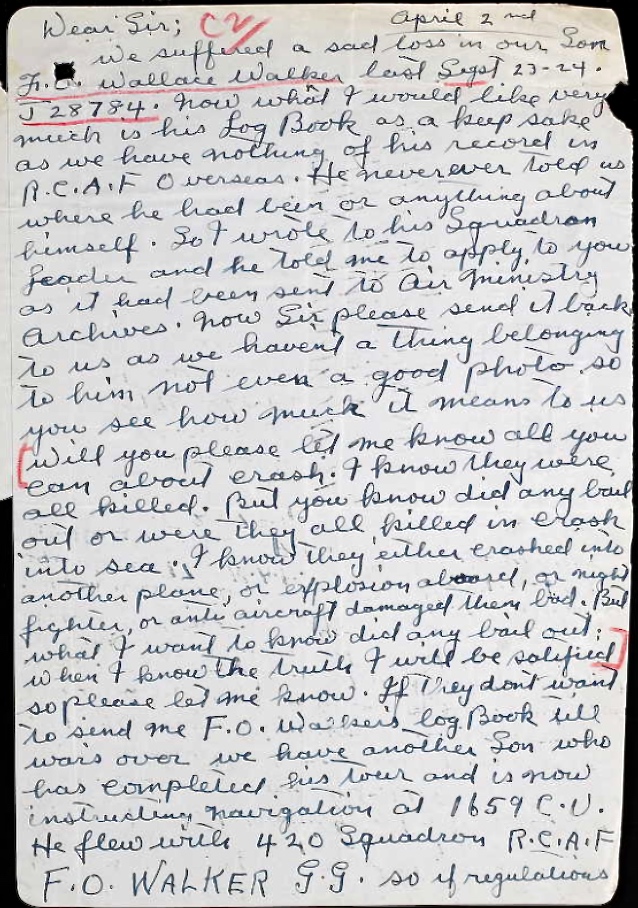 Dear Sir; C2 April 2nd
We suffered a sad loss in our Son
F.O. Wallace Walker last Sept 23-24.
J 28784. Now what I would like very
much is his Log Book as a keep sake
as we have nothing of his record in
R.C.A.F Overseas. He never ever told us
where he had been or anything about
himself. So I wrote to his Squadron
Leader and he told me to apply to you
as it had been sent to Air Ministry
Archives. Now Sir please send it back
to us as we havent a thing belonging
to him not even a good photo so
you see how much it means to us
[Will you please let me know all you
can about crash. I know they were
all killed. But you know did any bail
out or were they all killed in crash
into sea. I know they either crashed into
another plane, or explosion aboard, or night
fighter, or anti aircraft damaged them bad. But
what I want to know did any bail out:
when I know the truth I will be satified]
so please let me know. If they dont want
to send me F.O. Walker's log Book till
wars over we have another Son who
has completed his tour and is now
instructing navigation at 1659 C.U.
He flew with 420 Squadron R.C.A.F
F.O. WALKER G.G. so if regulations